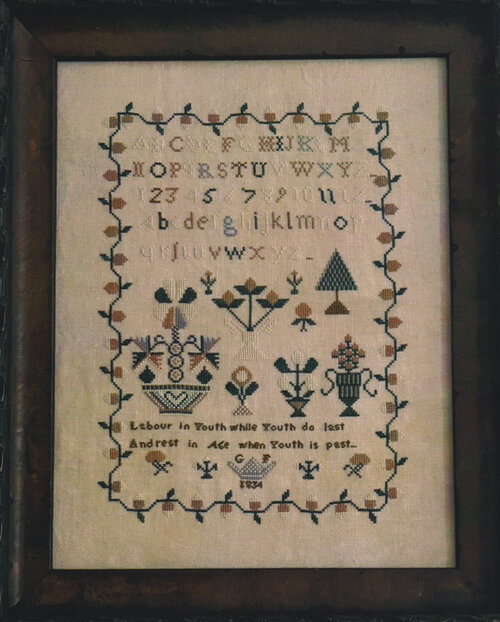 A B C D E F G H I J K L M
N O P Q R S T U V W X Y Z
1 2 3 4 5 6 7 8 9 10 11 12
a b c d e f g h i j k l m n o p
q r s t u v w x y z
Labour in Youth while Youth do last
And rest in Age when Youth is past
G F
1834